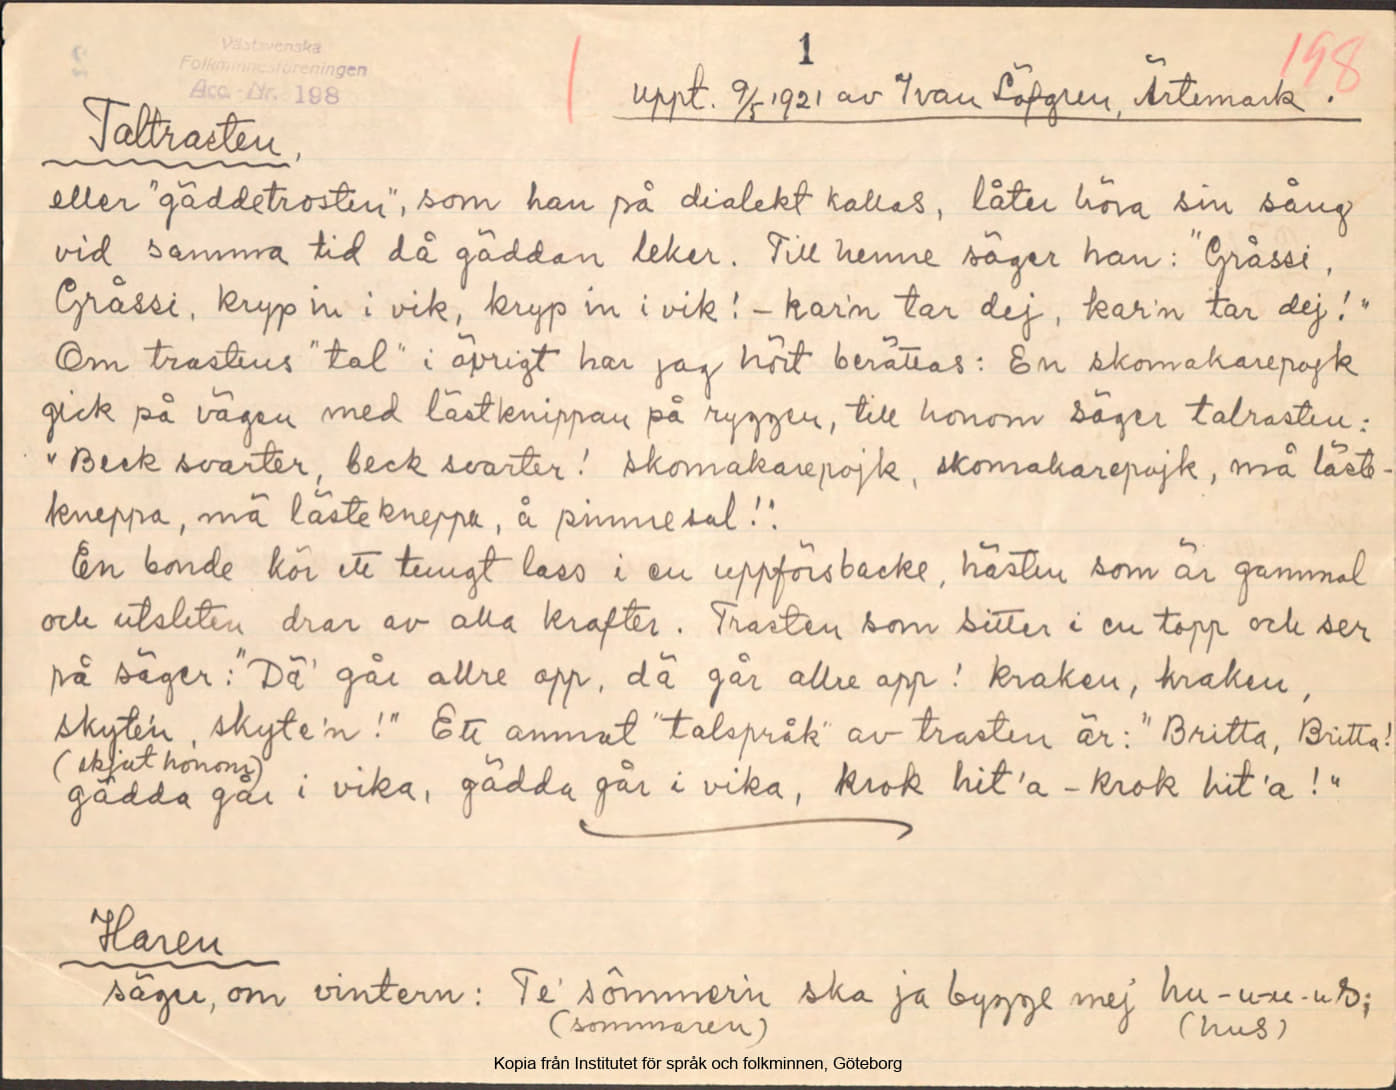 Västsvenska
Folkminnesföreningen
Acc. Nr. 198
1
198
uppt. 9/5 1921 av Ivan Löfgren, Ärtemark.
Taltrasten,
eller "gäddetrosten", som han på dialekt kallas, låter höra sin sång
vid samma tid då gäddan leker. Till henne säger han: "Gråssi,
Gråssi, kryp in i vik, kryp in i vik! - kar'n tar dej, kar'n tar dej!"
Om trastens "tal" i övrigt har jag hört berättas: En skomakarepojk
gick på vägen med lästknippan på ryggen, till honom säger talrasten:
"Beck svarter, beck svarter! skomakarepojk, skomakarepojk, må läste-
kneppa, mä lästekneppa, å pinnesul!!
En bonde kör ett tungt lass i en uppförsbacke, hästen som är gammal
och utsleten drar av alla krafter. Trasten som sitter i en topp och ser
på säger: "Dä' går allre opp, dä går allre opp! kraken, kraken,
skyte'n, skyte'n!" Ett annat "talspråk" av trasten är: "Britta, Britta!
(skjut honom)
gädda går i vika, gädda går i vika, krok hit'a - krok hit'a!"
Haren
säger, om vintern: Te' sômmer'n ska ja bygge mej hu-u-u-us;
(sommaren) (hus)
Kopia från Institutet för språk och folkminnen, Göteborg